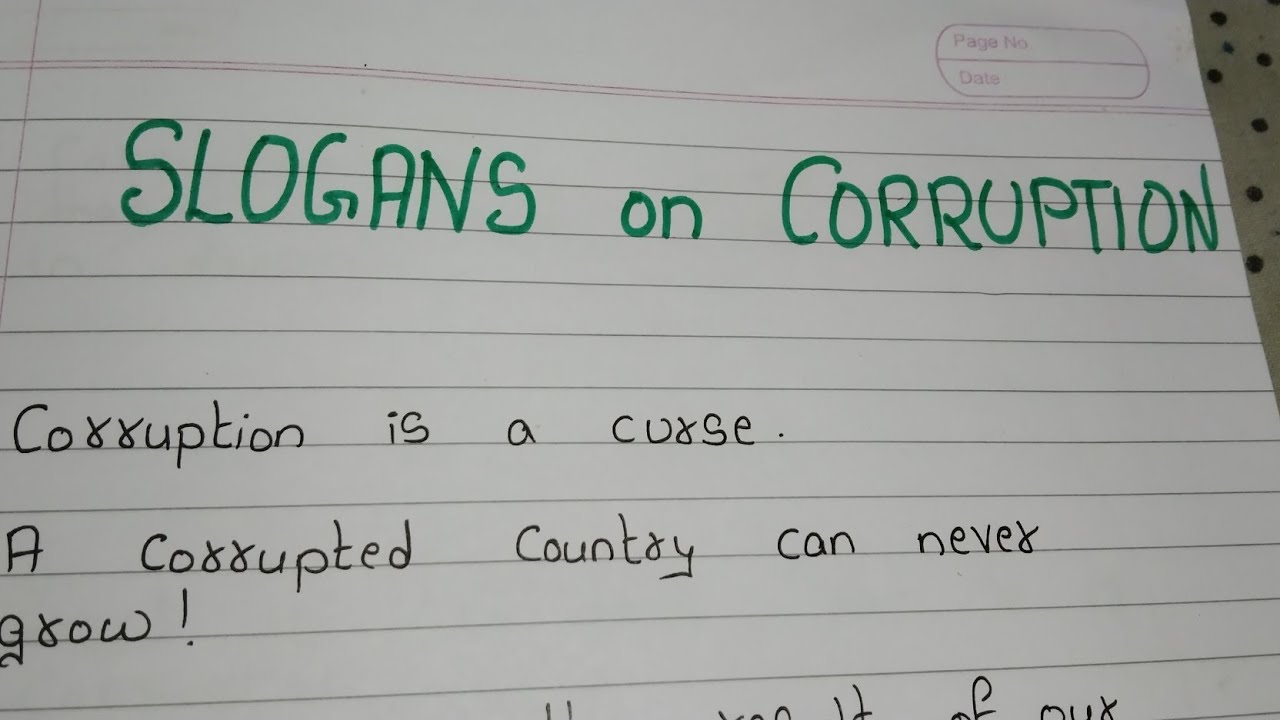 Page No
Date
SLOGANS on CORRUPTION
Corruption is a curse.
A Corrupted Country can never
grow!
of our